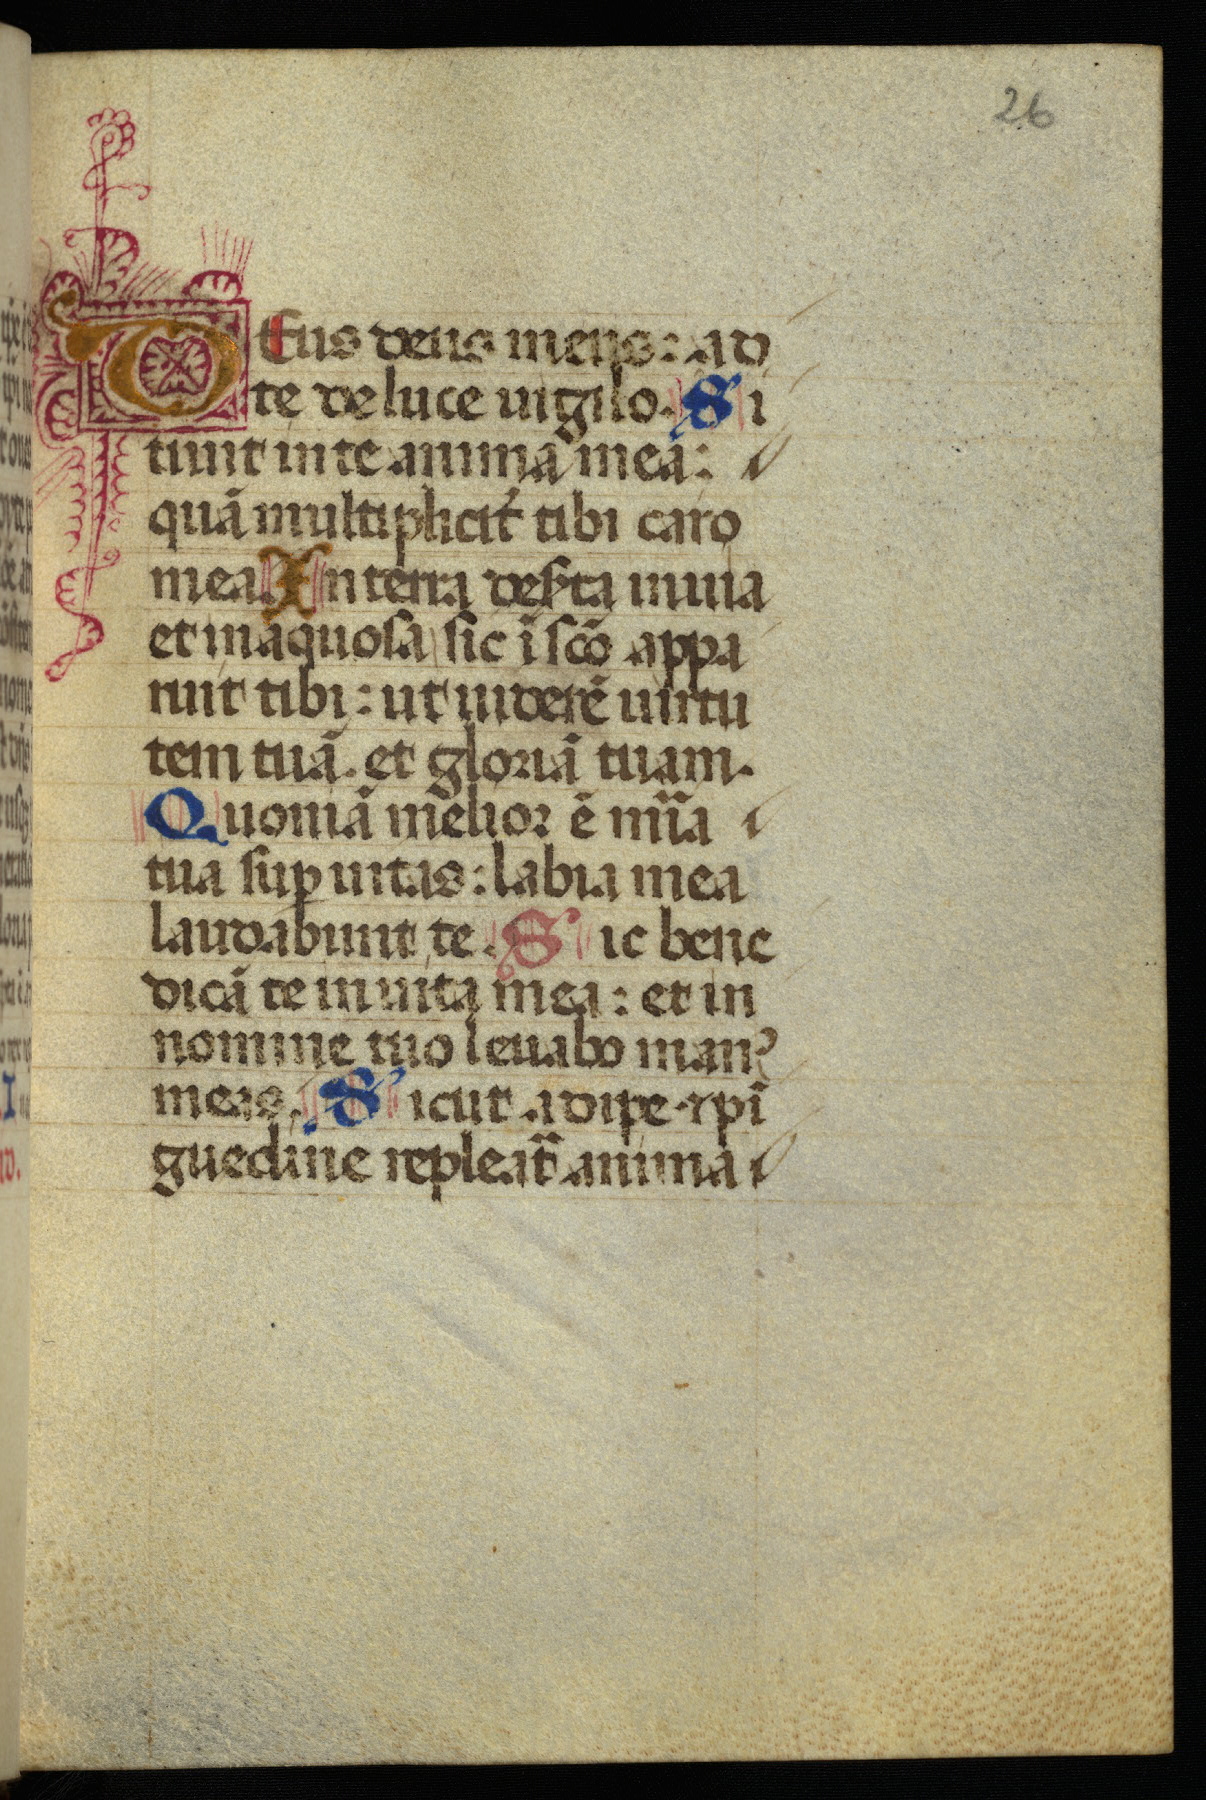 26
DEus deus meus: ad
te de luce uigilo. Si
tiuit in te anima mea:
quā multiplicit̄ tibi caro
mea. In terra deserta inuia
et inaquosa sic ī scō appa
ruit tibi: ut uiderē uirtu
tem tuā. et gloriā tuam.
Quoniā melior ē mīa
tua sup uitas: labia mea
laudabunt te. Sic bene
dicā te in uita mea: et in
nomine tuo leuabo man᷒
meas. Sicut adipe ⁊ pī
guedine repleat᷑ anima